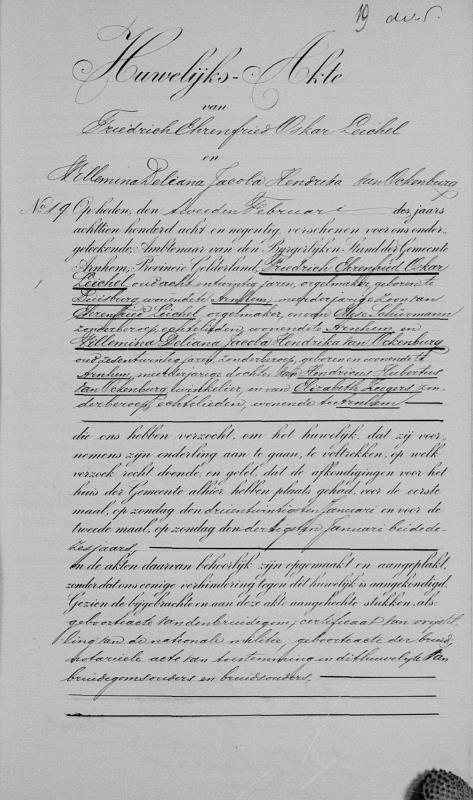 19 div.
Huwelijks-Akte
van
Friedrich Ehrenfried Oskar Leichel
en
Willemina Deliana Jacoba Hendrika van Ockenburg
No. 19. Op heden, den tweeden Februari des jaars
achttien honderd acht en negentig, verschenen voor ons onder-
geteekende Ambtenaar van den Burgerlijken Stand der Gemeente
Arnhem, Provincie Gelderland, Friedrich Ehrenfried Oskar
Leichel, oud acht en twintig jaren, orgelmaker, geboren te
Duisburg, wonende te Arnhem, meerderjarige zoon van
Ehrenfried Leichel, orgelmaker, en van Rose Schiermann
zonder beroep, echtelieden, wonende te Arnhem, en
Willemina Deliana Jacoba Hendrika van Ockenburg
oud zesentwintig jaren, zonder beroep, geboren en wonende te
Arnhem, meerderjarige dochter van Hendricus Hubertus
van Ockenburg, winkelier, en van Elizabeth Zeegers, zon-
der beroep, echtelieden, wonende te Arnhem
die ons hebben verzocht, om het huwelijk, dat zij voor-
nemens zijn onderling aan te gaan, te voltrekken, op welk
verzoek recht doende, en gelet, dat de afkondigingen voor het
huis der Gemeente alhier hebben plaats gehad, voor de eerste
maal, op zondag den drieëntwintigsten Januari en voor de
tweede maal, op zondag den dertigsten Januari beide de-
zes jaars,
in de akten daarvan behoorlijk zijn opgemaakt en aangeplakt,
zonder dat ons eenige verhindering tegen dit huwelijk is aangekondigd.
Gezien de bijgebrachte en aan deze akt aangehechte stukken, als:
geboorteacte van den bruidegom; certificaat van vrijstel-
ling van de nationale militie; geboorteacte der bruid;
notariele acte van toestemming in dit huwelijk van
bruidegoms ouders en bruids ouders,